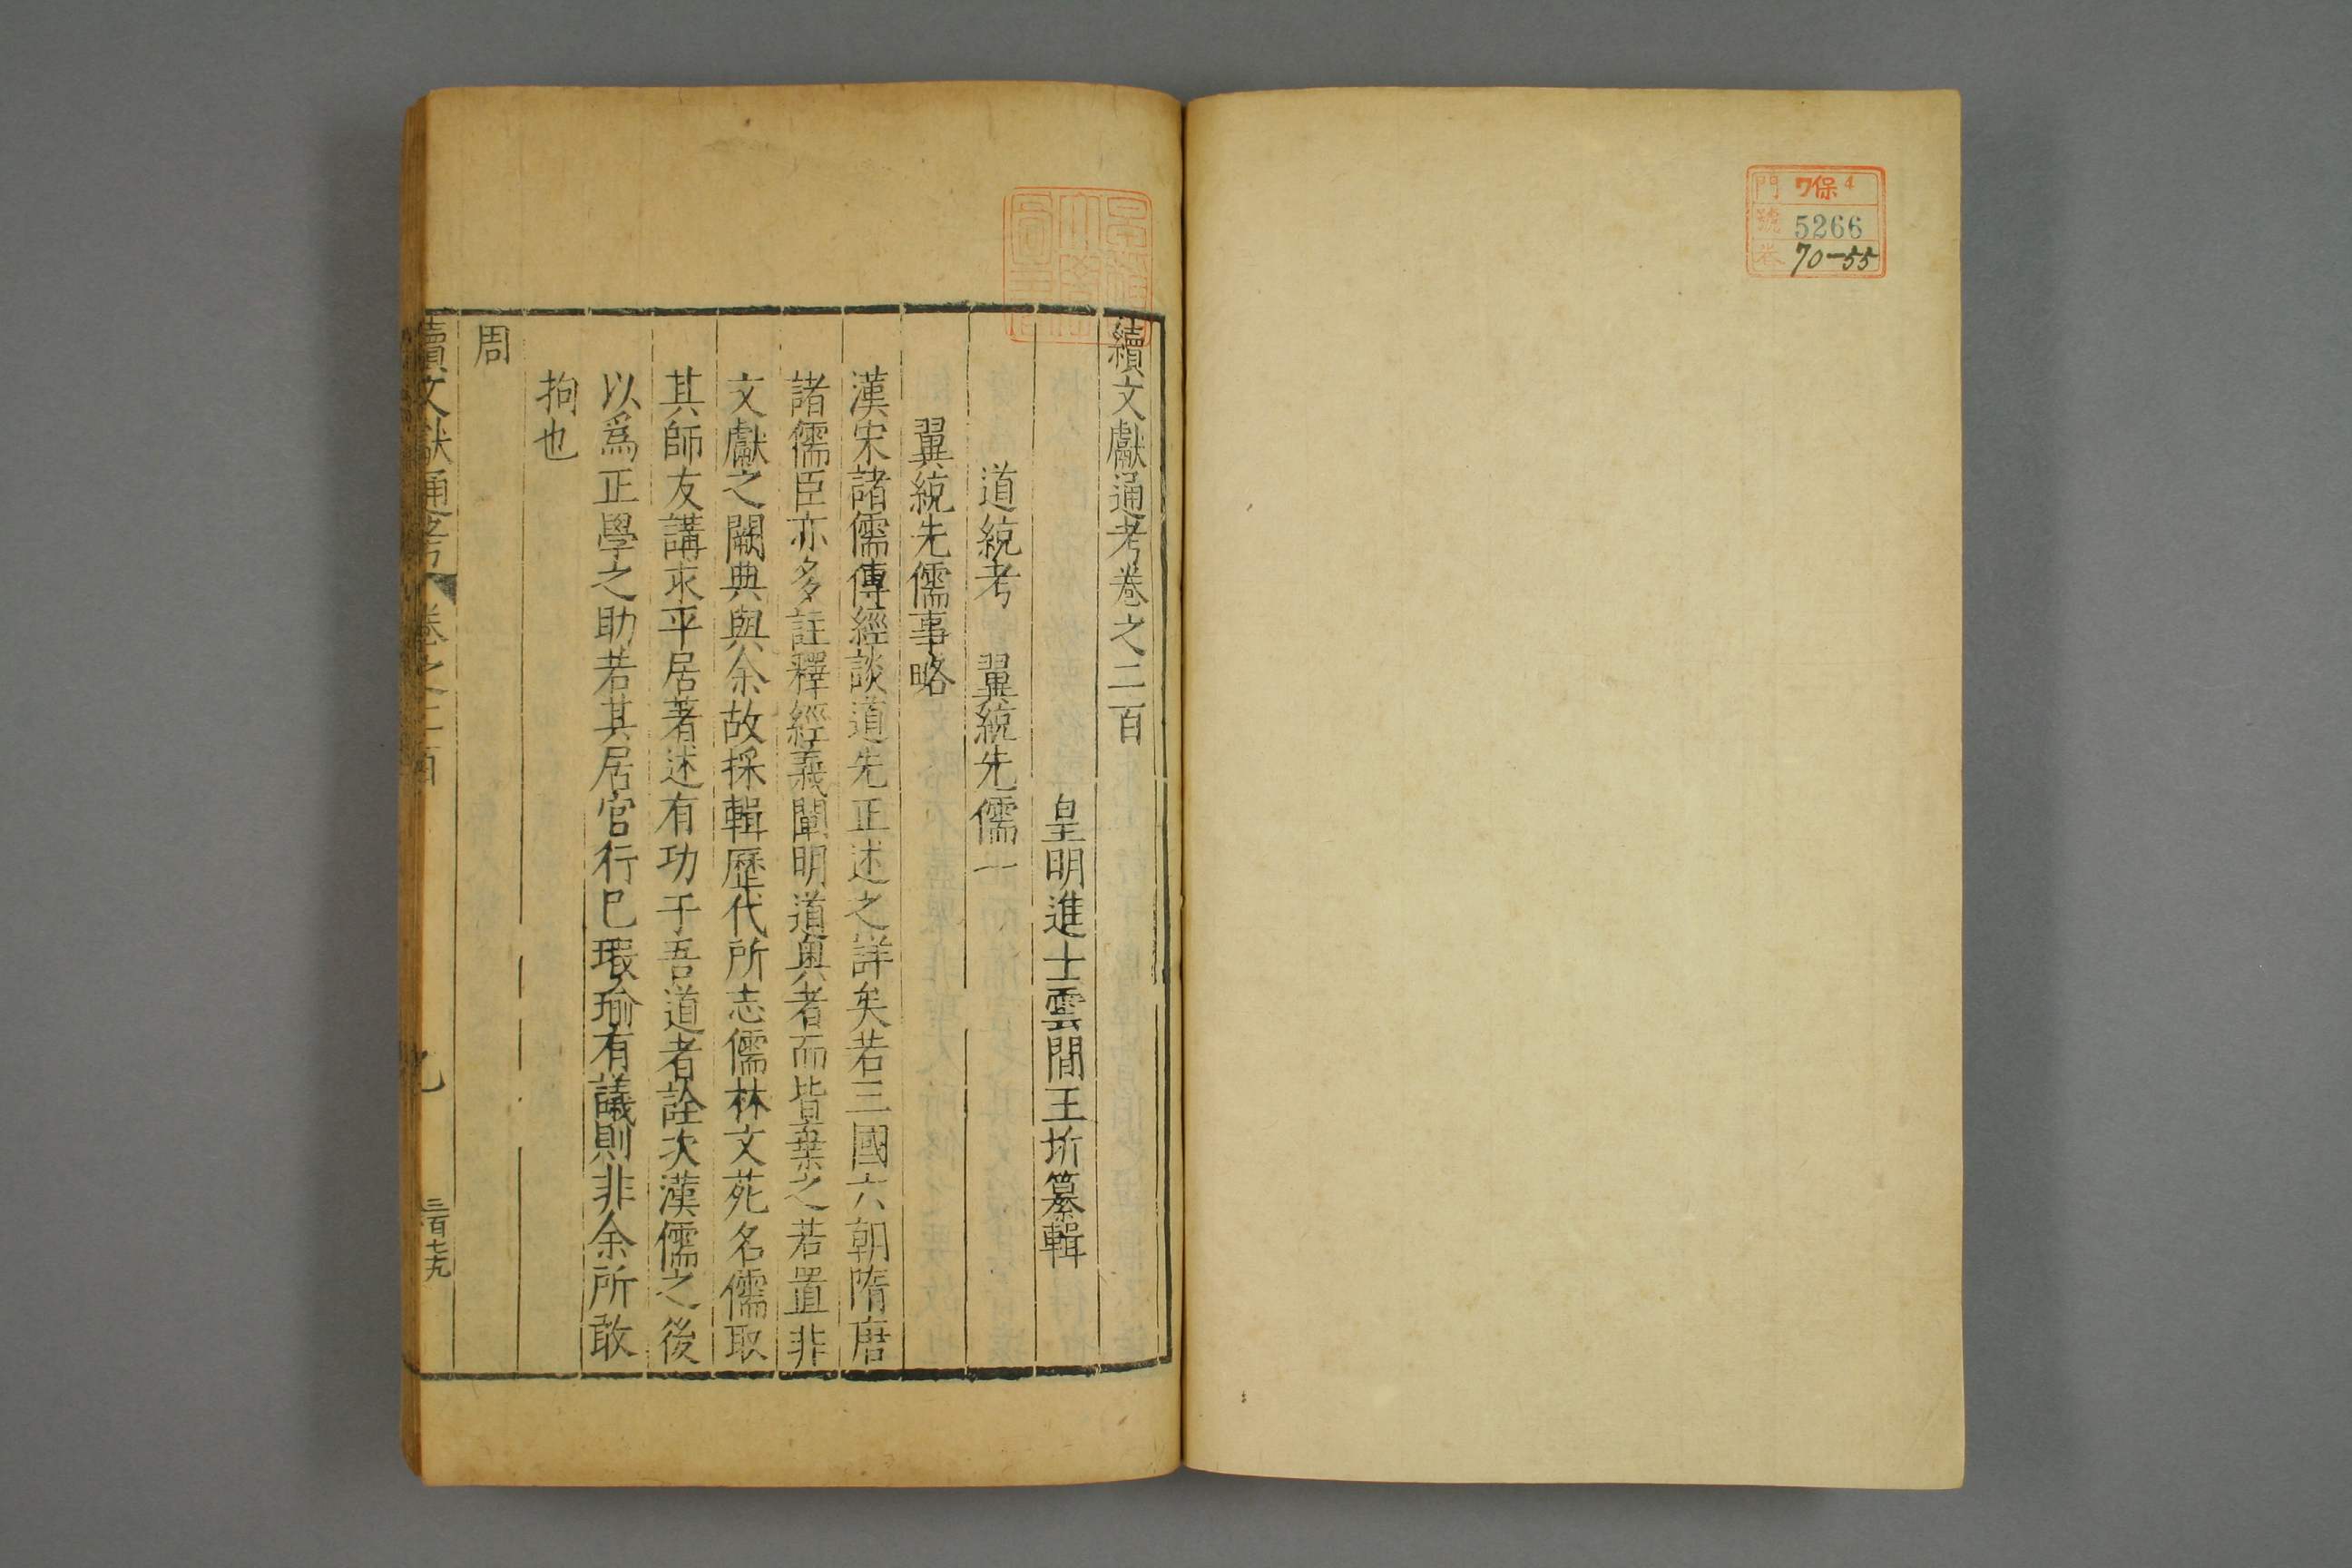 門 ワ保 4
號 5266
卷 70-55
續文獻通考卷之二百
皇明進士雲間王圻纂輯
道統考 翼統先儒一
翼統先儒事略
漢宋諸儒傳經談道先正述之詳矣若三國六朝隋唐
諸儒臣亦多註釋經義闡明道奧者而皆棄之若置非
文獻之闕典與余故採輯歷代所志儒林文苑名儒取
其師友講求平居著述有功于吾道者詮次漢儒之後
以爲正學之助若其居官行巳瑕瑜有議則非余所敢
拘也
周
續文獻通考 卷之二百
三百七九